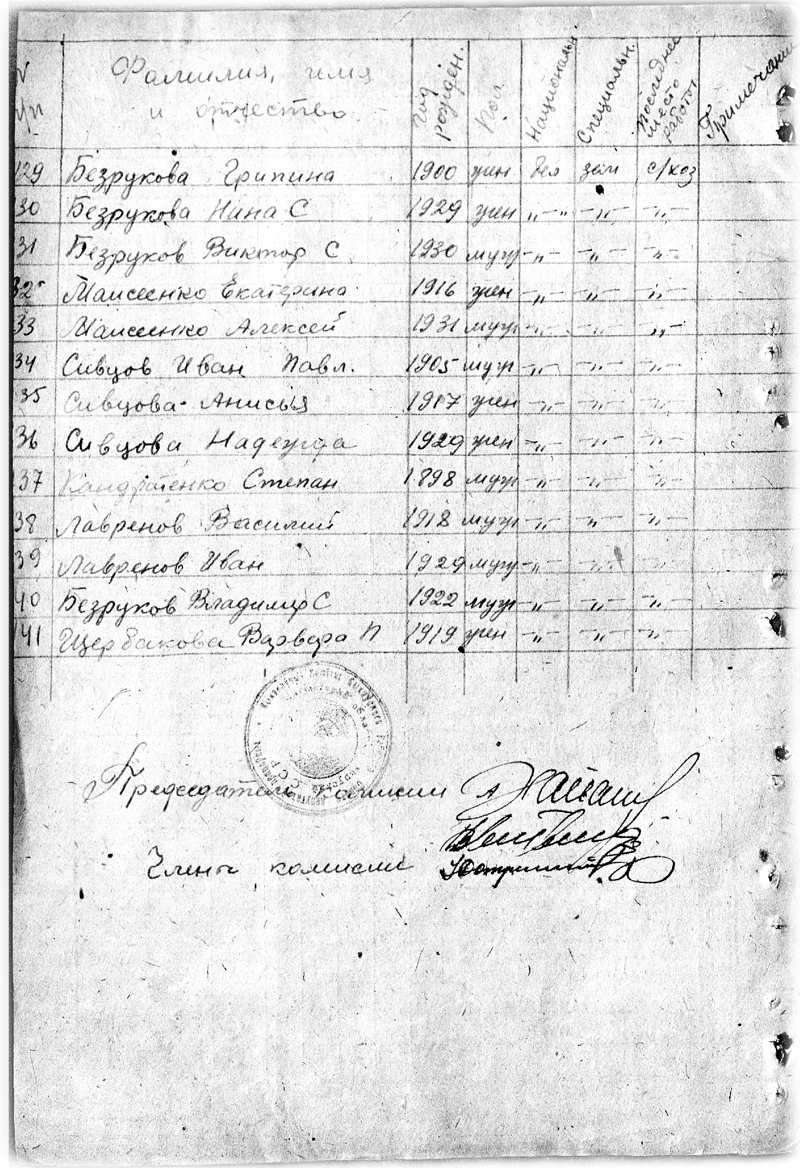 № п/п Фамилия, имя и отчество Год рожден. Пол Национальн. Специальн. Последнее место работы Примечание
129 Безрукова Грипина 1900 жен бел зем с/хоз
130 Безрукова Нина С 1929 жен -"- -"- -"-
131 Безруков Виктор С. 1930 муж -"- -"- -"-
132 Маисеенко Екатерина 1916 жен -"- -"- -"-
133 Маисеенко Алексей 1931 муж -"- -"- -"-
134 Сивцов Иван Павл. 1905 муж -"- -"- -"-
135 Сивцова Анисья 1917 жен -"- -"- -"-
136 Сивцова Надежда 1929 жен -"- -"- -"-
137 Кандратенко Степан 1898 муж -"- -"- -"-
138 Лавренов Василий 1918 муж -"- -"- -"-
139 Лавренов Иван 1929 муж -"- -"- -"-
140 Безруков Владимир С 1922 муж -"- -"- -"-
141 Щербакова Варвара П 1919 жен -"- -"- -"-
Председатель комиссии
Члены комиссии